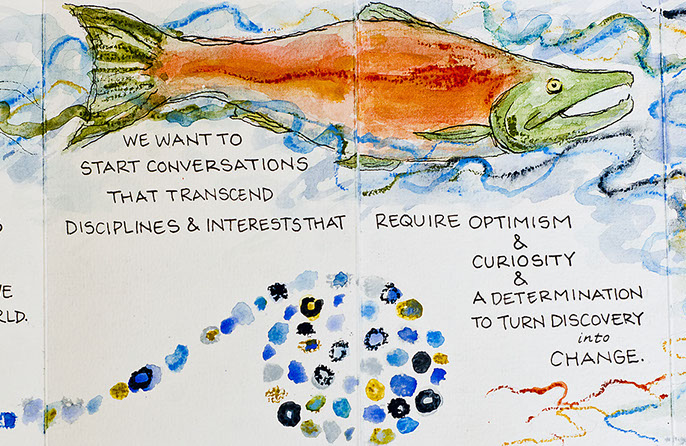 VE
RLD.
WE WANT TO
START CONVERSATIONS
THAT TRANSCEND
DISCIPLINES & INTERESTS THAT
REQUIRE OPTIMISM
&
CURIOSITY
&
A DETERMINATION
TO TURN DISCOVERY
into
CHANGE.